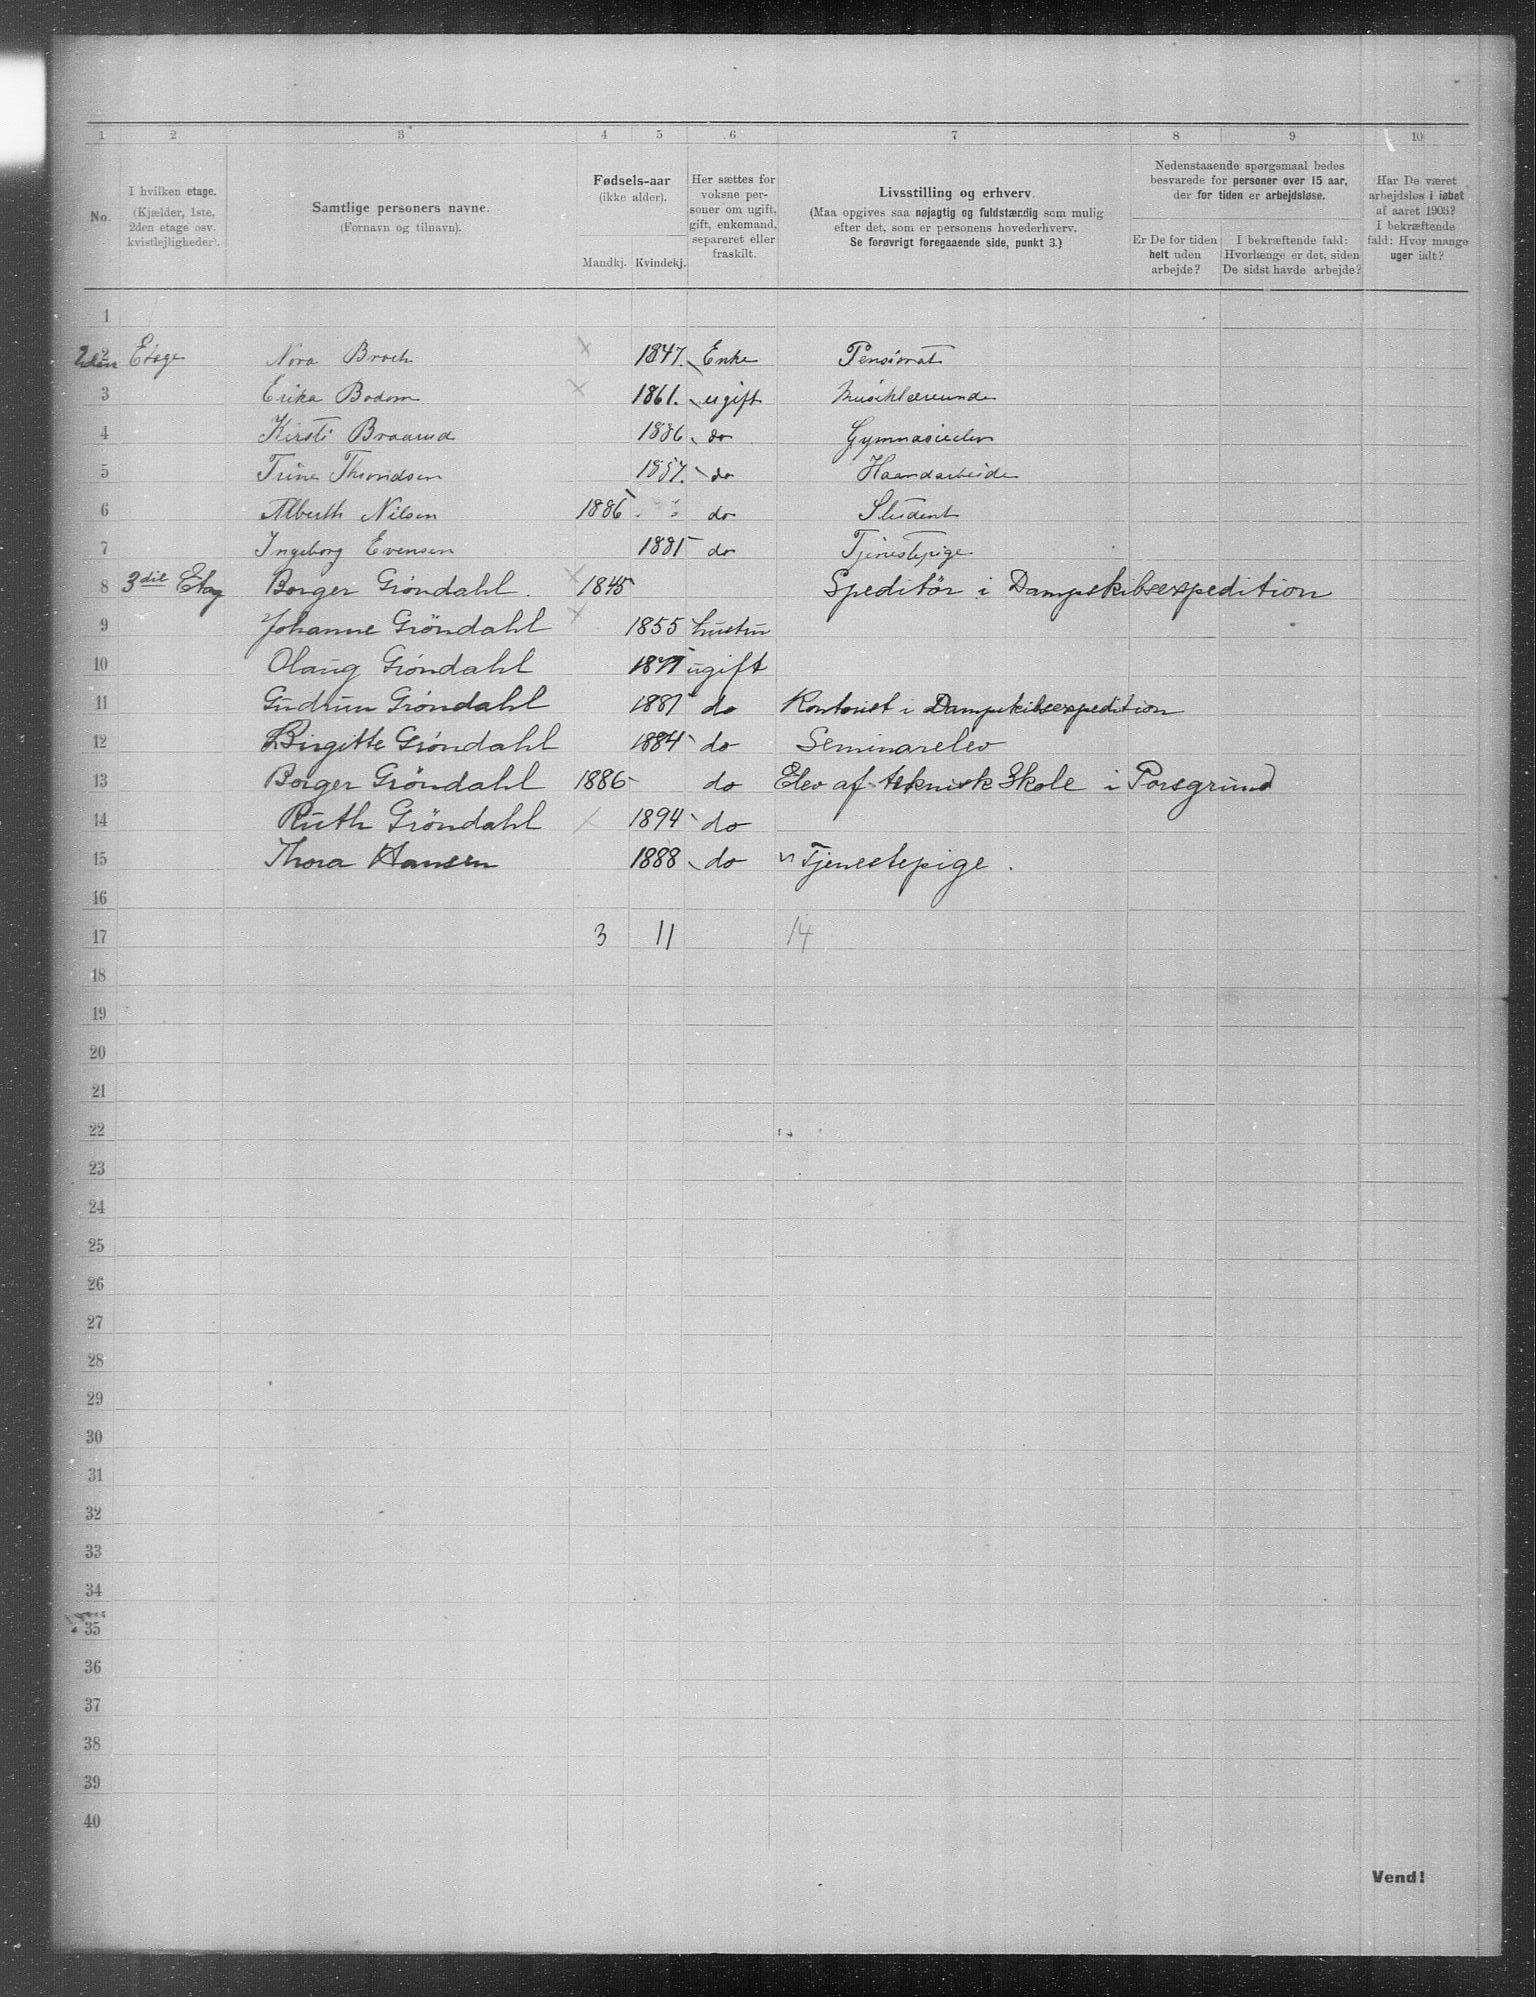 1 2 3 4 5 6 7 8 9 10
No.
I hvilken etage. (Kjælder, 1ste, 2den etage osv. kvistlejligheder).
Samtlige personers navne. (Fornavn og tilnavn).
Fødsels-aar (ikke alder).
Mandkj. Kvindekj.
Her sættes for voksne personer om ugift, gift, enkemand, separeret eller fraskilt.
Livsstilling og erhverv.
(Maa opgives saa nøjagtig og fuldstændig som mulig efter det, som er personens hovederhverv.
Se forøvrigt foregaaende side, punkt 3.)
Nedenstaaende spørgsmaal bedes besvarede for personer over 15 aar, der for tiden er arbejdsløse.
Er De for tiden helt uden arbejde?
I bekræftende fald: Hvorlænge er det, siden De sidst havde arbejde?
Har De været arbejdsløs i løbet af aaret 1903? I bekræftende fald: Hvor mange uger ialt?
1
2 2den Etage Nora Broch 1847. Enke Pensionat
3 Erika Bodom 1861. ugift Musiklærerinde
4 Kirsti Braarud 1886 do Gymnasieelev
5 Trine Thoridsen 1857. do Haandarbeide
6 Alberth Nilsen 1886 do Student
7 Ingeborg Evensen 1881 do Tjenestepige
8 3die Etag Borger Grøndahl. 1845 Speditør i Dampskibsexpedition
9 Johanne Grøndahl 1855 hustru
10 Olaug Grøndahl ugift
11 Gudrun Grøndahl 1881 do Kontorist i Dampskibsexpedition
12 Birgitte Grøndahl 1884 do Seminarelev
13 Borger Grøndahl 1886 do Elev af teknisk Skole i Porsgrund
14 Ruth Grøndahl 1894 do
15 Thora Hansen 1888 do Tjenestepige.
16
17 3 11 14
18
19
20
21
22
23
24
25
26
27
28
29
30
31
32
33
34
35
36
37
38
39
40
Vend!